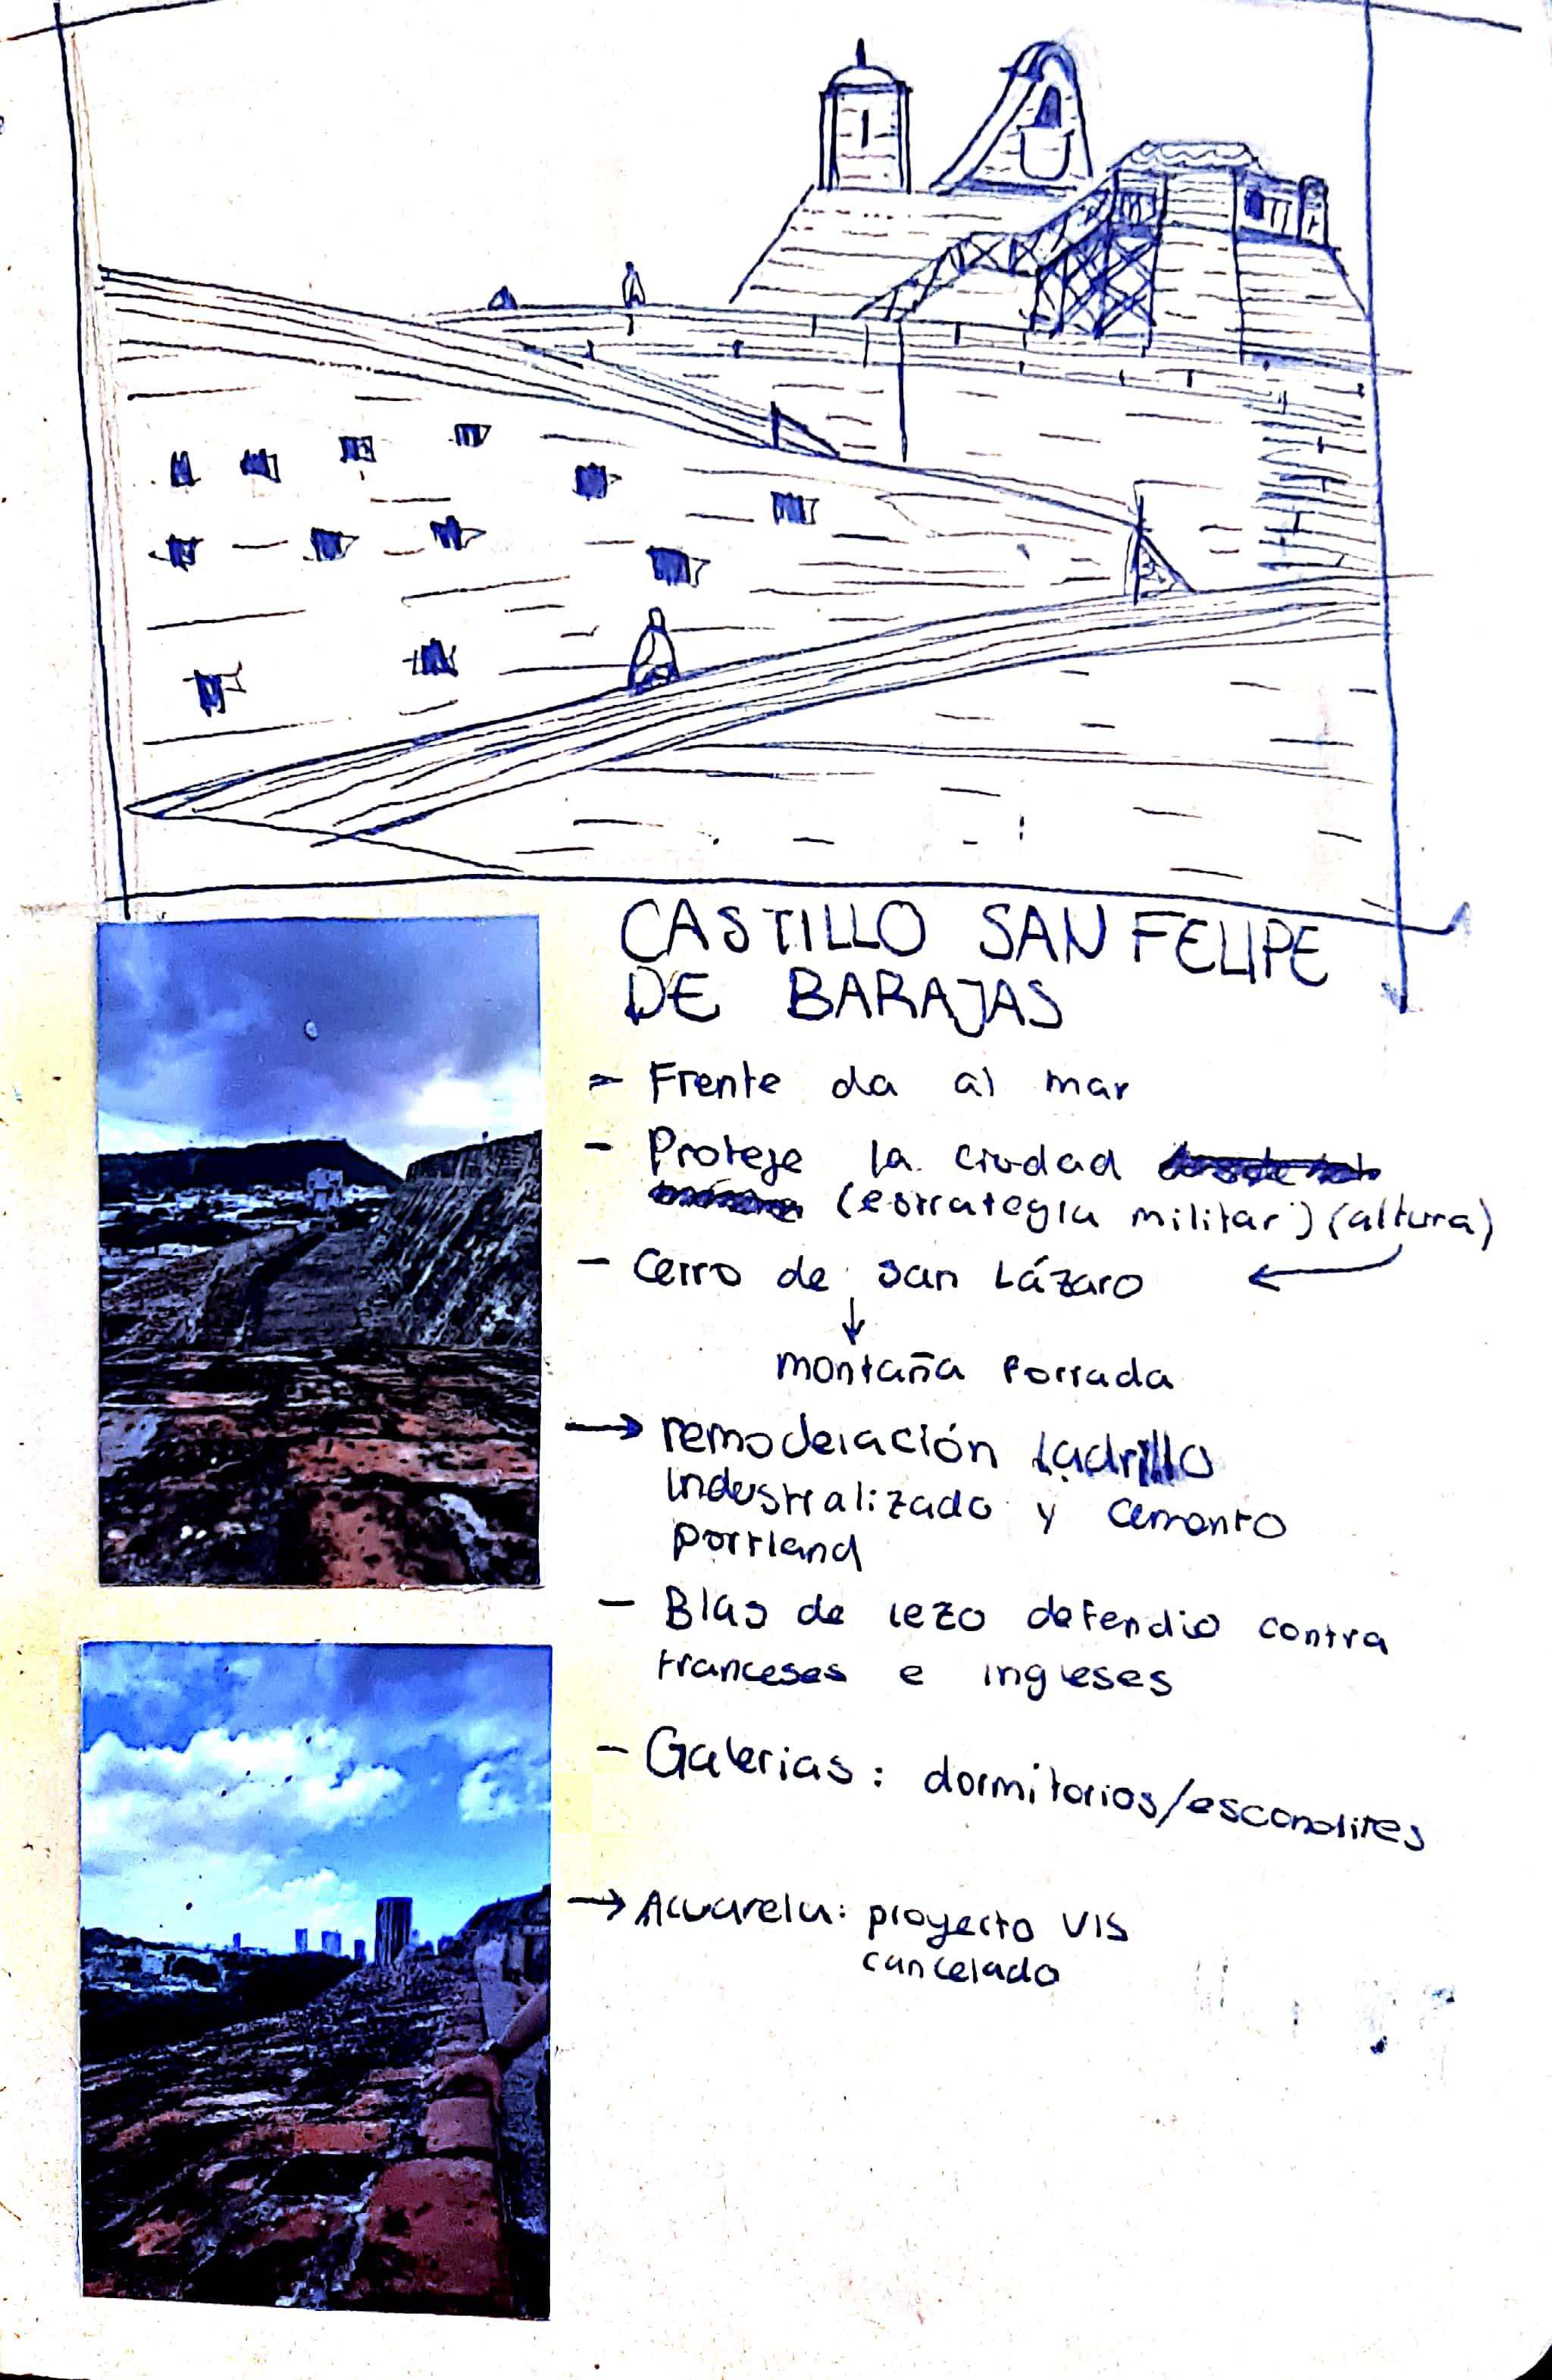 CASTILLO SAN FELIPE
DE BARAJAS
- Frente da al mar
- Proteje la ciudad
(estrategia militar) (altura)
- Cerro de san Lázaro
montaña forrada
→ remodelación ladrillo
industralizado y cemento
portland
- Blas de lezo defendio contra
franceses e ingleses
- Galerias: dormitorios/escondites
→ Acuarela: proyecto VIS
cancelado